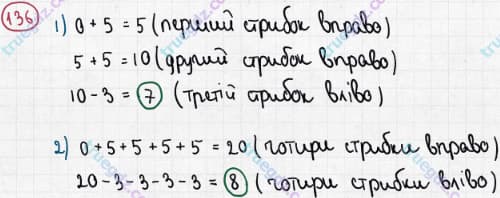 136 1) 0 + 5 = 5 (перший стрибок вправо)
5 + 5 = 10 (другий стрибок вправо)
10 - 3 = 7 (третій стрибок вліво)
2) 0 + 5 + 5 + 5 + 5 = 20 (чотири стрибки вправо)
20 - 3 - 3 - 3 - 3 = 8 (чотири стрибки вліво)